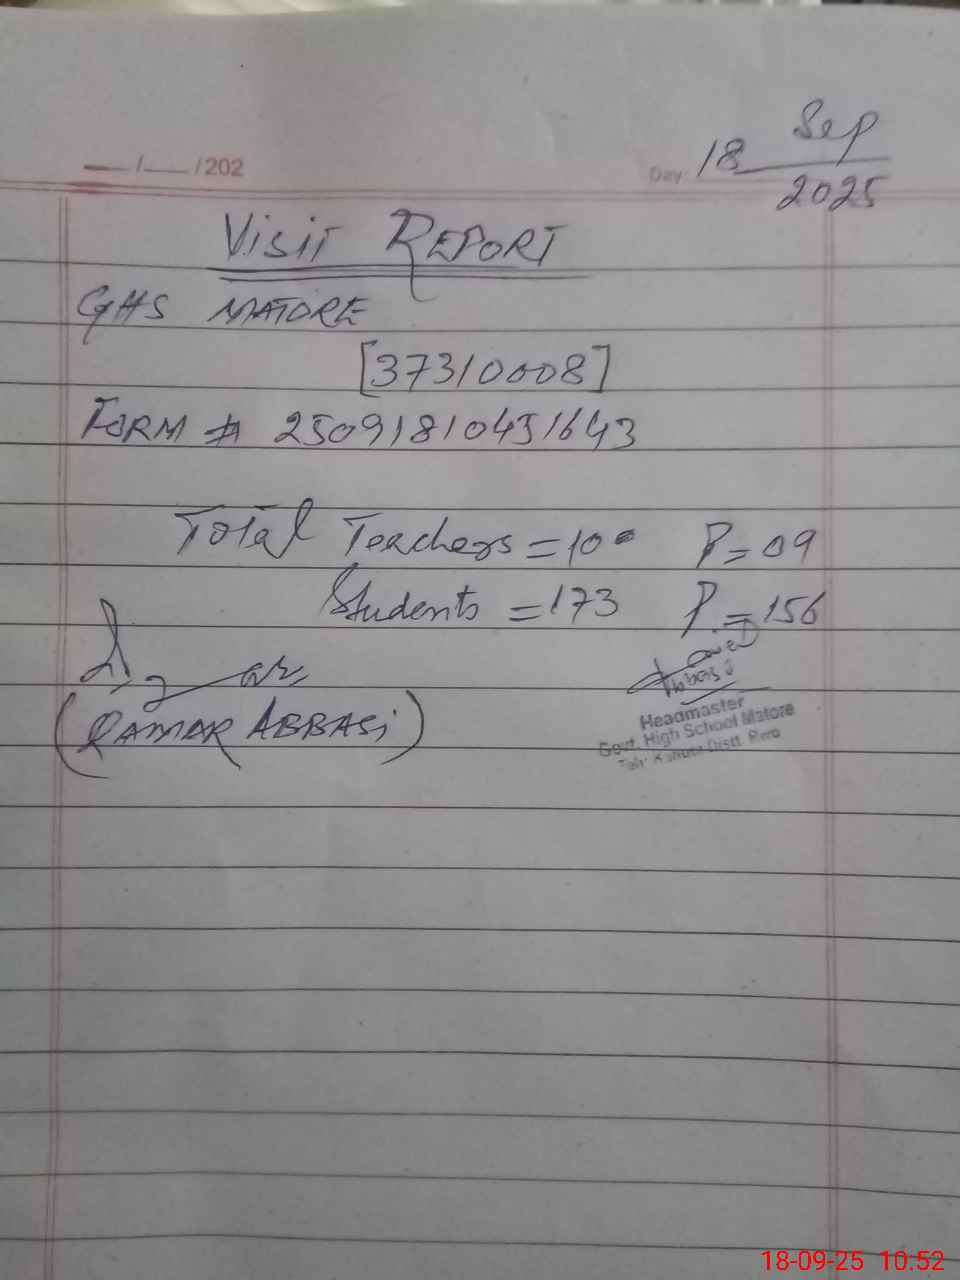 — /— /202
Day: 18 Sep
2025
VISIT REPORT
GHS MATORE
[37310008]
FORM # 25091810451643
Total Teachers = 10 P = 09
Students = 173 P. = 156
(QAMAR ABBASi)
Headmaster
Govt. High School Matore
Teh: Kahuta Distt. Rwp
18-09-25 10.52